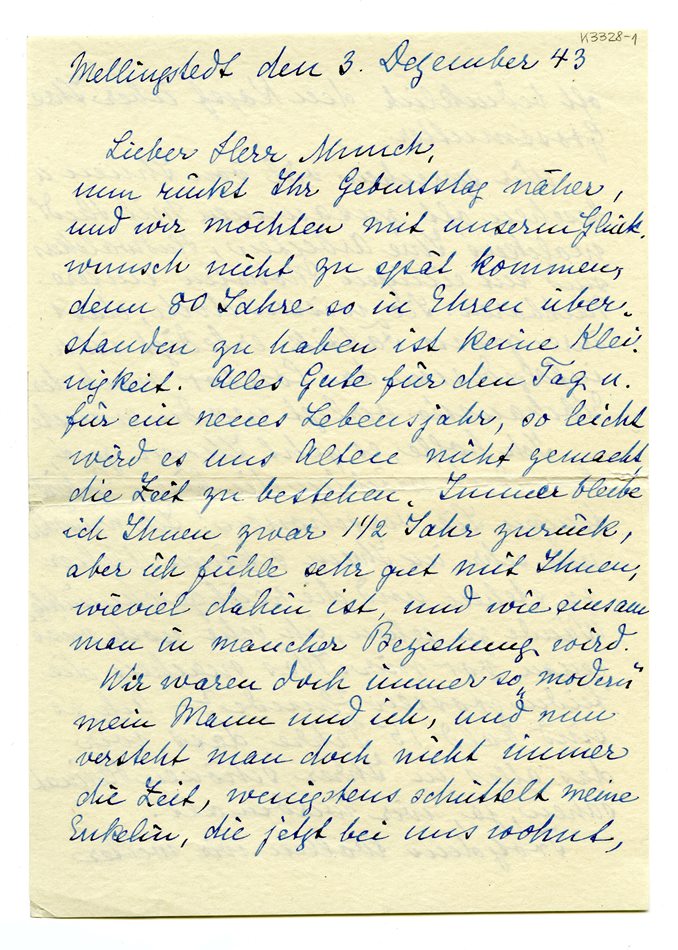 K3328-1
Mellingstedt den 3. Dezember 43
Lieber Herr Munch,
nun rückt Ihr Geburtstag näher,
und wir möchten mit unserm Glück-
wunsch nicht zu spät kommen,
denn 80 Jahre so in Ehren über-
standen zu haben ist keine Klei-
nigkeit. Alles Gute für den Tag u.
für ein neues Lebensjahr, so leicht
wird es uns Alten nicht gemacht,
die Zeit zu bestehen. Immer bleibe
ich Ihnen zwar 1 1/2 Jahr zurück,
aber ich fühle sehr gut mit Ihnen,
wieviel dahin ist, und wie einsam
man in mancher Beziehung wird.
Wir waren doch immer so „modern“
mein Mann und ich, und nun
versteht man doch nicht immer
die Zeit, wenigstens schüttelt meine
Enkelin, die jetzt bei uns wohnt,